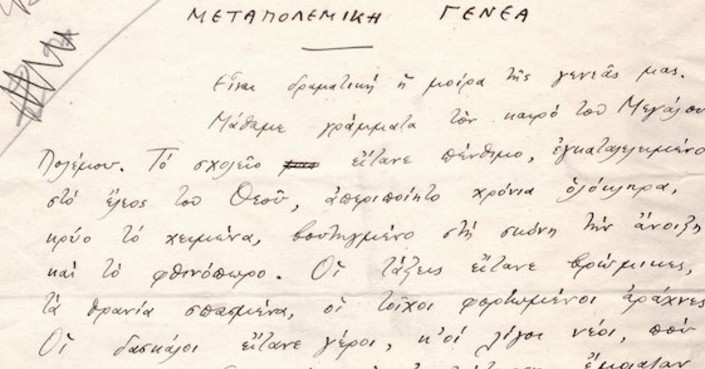 ΜΕΤΑΠΟΛΕΜΙΚΗ ΓΕΝΕΑ
Εἶναι δραματικὴ ἡ μοίρα τῆς γενεᾶς μας.
Μάθαμε γράμματα τὸν καιρὸ τοῦ Μεγάλου
Πολέμου. Τὸ σχολεῖο εἴτανε πένθιμο, ἐγκαταλελειμμένο
στὸ ἔλεος τοῦ Θεοῦ, ἀπεριποίητο χρόνια ὁλόκληρα,
κρύο τὸ χειμώνα, βουτηγμένο στὴ σκόνη τὴν ἄνοιξη
καὶ τὸ φθινόπωρο. Οἱ τάξεις εἴτανε βρώμικες,
τὰ θρανία σπασμένα, οἱ τοῖχοι φορτωμένοι ἀράχνες
Οἱ δασκάλοι εἴτανε γέροι, κ' οἱ λίγοι νέοι, ποὺ